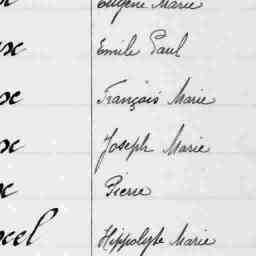 Eugène Marie
Emile Paul
François Marie
Joseph Marie
Pierre
Hippolyte Marie